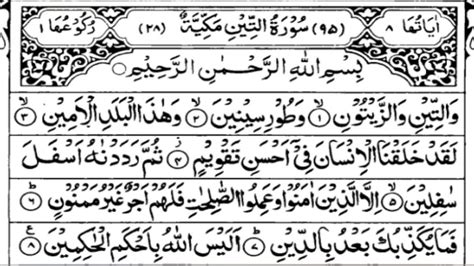 اٰيَاتُهَا ٨ (٩٥) سُوْرَةُ التِّيْنِ مَكِّيَّةٌ (٢٨) رُكُوْعُهَا ١
بِسْمِ اللّٰهِ الرَّحْمٰنِ الرَّحِيْمِ
وَالتِّيْنِ وَالزَّيْتُوْنِ ۙ‏١ وَطُوْرِ سِيْنِيْنَ ۙ‏٢ وَهٰذَا الْبَلَدِ الْاَمِيْنِ ۙ‏٣
لَقَدْ خَلَقْنَا الْاِنْسَانَ فِيْٓ اَحْسَنِ تَقْوِيْمٍ ۫‏٤ ثُمَّ رَدَدْنٰهُ اَسْفَلَ
سٰفِلِيْنَ ۙ‏٥ اِلَّا الَّذِيْنَ اٰمَنُوْا وَعَمِلُوا الصّٰلِحٰتِ فَلَهُمْ اَجْرٌ غَيْرُ مَمْنُوْنٍ ؕ‏٦
فَمَا يُكَذِّبُكَ بَعْدُ بِالدِّيْنِ ؕ‏٧ اَلَيْسَ اللّٰهُ بِاَحْكَمِ الْحٰكِمِيْنَ ‏٨